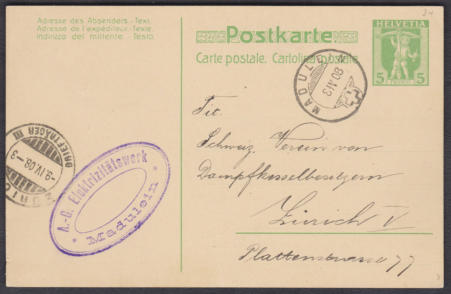 Adresse des Absenders - Text.
Adresse de l'expéditeur - Texte.
Indirizzo del mittente - Testo.
Postkarte
Carte postale. Cartolina postale.
HELVETIA
5 5
MADULEIN
IV 08
Tit.
Schweiz. Verein von
Dampfkesselbesitzern
Zürich V
Plattenstrasse 77
A.-G. Elektrizitätswerk
Madulein
BRIEFTRÄGER III
9. IV 08 - 3